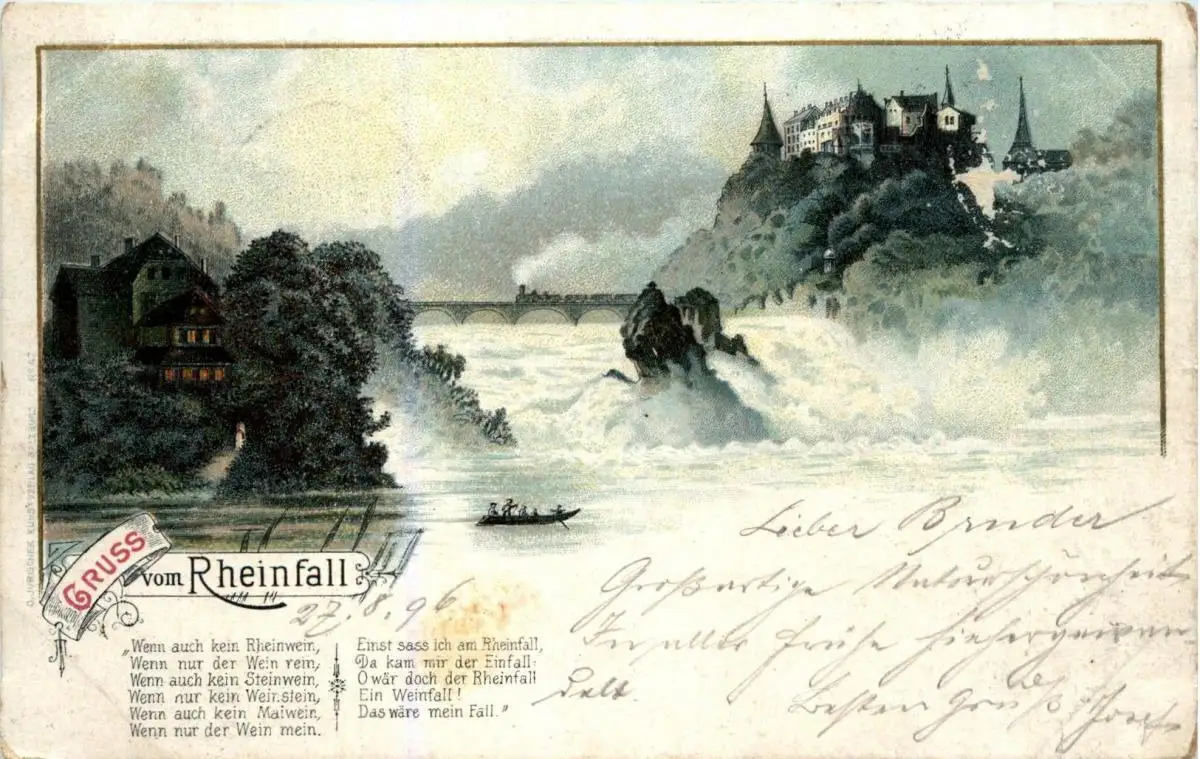 GRUSS
vom Rheinfall
27.8.96
„Wenn auch kein Rheinwein,
Wenn nur der Wein rein,
Wenn auch kein Steinwein,
Wenn nur kein Weinstein,
Wenn auch kein Maiwein,
Wenn nur der Wein mein.
Einst sass ich am Rheinfall,
Da kam mir der Einfall:
O wär doch der Rheinfall
Ein Weinfall!
Das wäre mein Fall."
Lieber Bruder
Großartige Naturschönheit
In aller Frühe hierhergewan
delt.
Besten Gruß